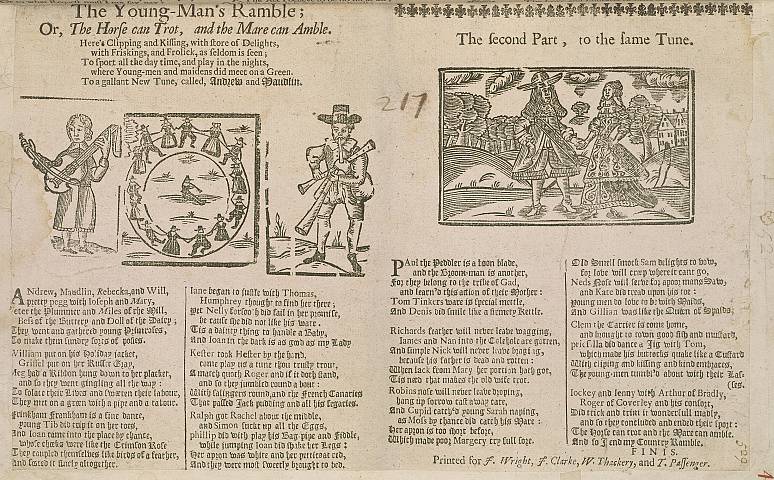 The Young-Man's Ramble;
Or, The Horse can Trot, and the Mare can Amble.
Here's Clipping and Kissing, with store of Delights,
with Friskings, and Frolick, as seldom is seen;
To sport all the day time, and play in the nights,
where Young-men and maidens did meet on a Green.
To a gallant New Tune, called, Andrew and Maudlin.
ANdrew, Maudlin, Rebecka, and Will,
pretty pegg with Joseph and Mary,
eter the Plummer and Miles of the Mill,
Bess of the Buttery and Doll of the Dairy;
They went and gathered young Primroses,
To make them sundry sorts of posies.
William put on his Holiday jacket,
Grissel put on her Russet Gray,
Meg had a Ribbon hung down to her placket,
and so they went gingling all the way:
To solace their Lives and sweeten their labour,
They met on a green with a pipe and a tabour.
Frinkham Frankham is a fine dance,
young Tib did trip it on her toes,
And Joan came into the place by chance,
whose cheeks were like the Crimson Rose
They coupled themselves like birds of a feather,
and footed it finely altogether.
Jane began to sussle with Thomas,
Humphrey thought to find her there;
Yet Nelly forsook'd did fail in her promise,
because she did not like his ware:
Tis a dainty thing to handle a Baby,
And Joan in the dark is as good as my Lady
Kester took Hester by the hand,
came play us a tune thou trusty trout,
A match quoth Roger and if it both stand,
and so they jumbled round a bout:
With Sallingers round, and the French Canaries
That passed Jack pudding and all his fegaries.
Ralph got Rachel about the middle,
and Simon suckt up all the Eggs,
phillip did with play his Bag pipe and Fiddle,
while jumping Joan did shake her Legs:
Her apron was white and her petticoat red,
And they were most sweetly brought to bed.
217
The second Part, to the same Tune.
PAul the Pedler is a boon blade,
and the Broom-man is another,
For they belong to the trade of Gad,
and learn'd this action of their Mother:
Tom Tinkers ware is special mettle,
And Denis did smile like a skemery Kettle.
Richards feather will never leave wagging,
James and Nan into the Colehole are gotten,
And simple Nick will never leave bragging,
because his father is dead and rotten:
When lack from Mary her portion hath got,
Tis need that makes the old wife trot.
Robins nose will never leave droping,
hang up sorrow cast away care
And Cupid catch'd young Sarah naping,
as Moss by chance did catch his Mare:
Her apron is too short before,
Which made poor Margery cry full sore.
Old Smell smock Sam delights to wow,
for love will creep where it cant go,
Neds Nose will serve for a poor mans Saw;
and Kate did tread upon his toe:
young men do love to be with Maids,
And Gillian was like the Queen of Spaids.
Clem the Carrier is come home,
and brought to town good fish and mustard,
priscilla did dance a Jig with Tom,
which made his buttocks quake like a Custard
With cliping and kissing and kind embraces,
The young-men tumbl'd about with their Las-
(ses.
Jockey and Jenny with Arthur of Bradly,
Roger of Coverley and his consort,
Did trick and trim it wonderfull madly,
and so they concluded and ended their sport:
The Horse can trot and the Mare can amble.
And so I end my Country Ramble.
FINIS.
Printed for J. Wright, J. Clarke, W. Thackery, and T. Passenger.